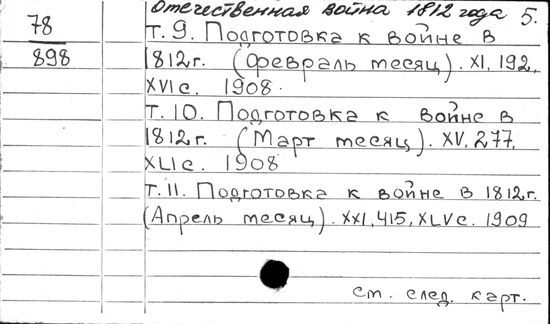 Отечественная война 1812 года 5.
78
898
т. 9. Подготовка к войне в
1812 г. (февраль месяц). XI, 192,
XVI с. 1908.
т. 10. Подготовка к войне в
1812 г. (Март месяц). XV, 277,
XLI с. 1908
т. 11. Подготовка к войне в 1812 г.
(Апрель месяц). XXI, 415, XLV с. 1909
см. след. карт.